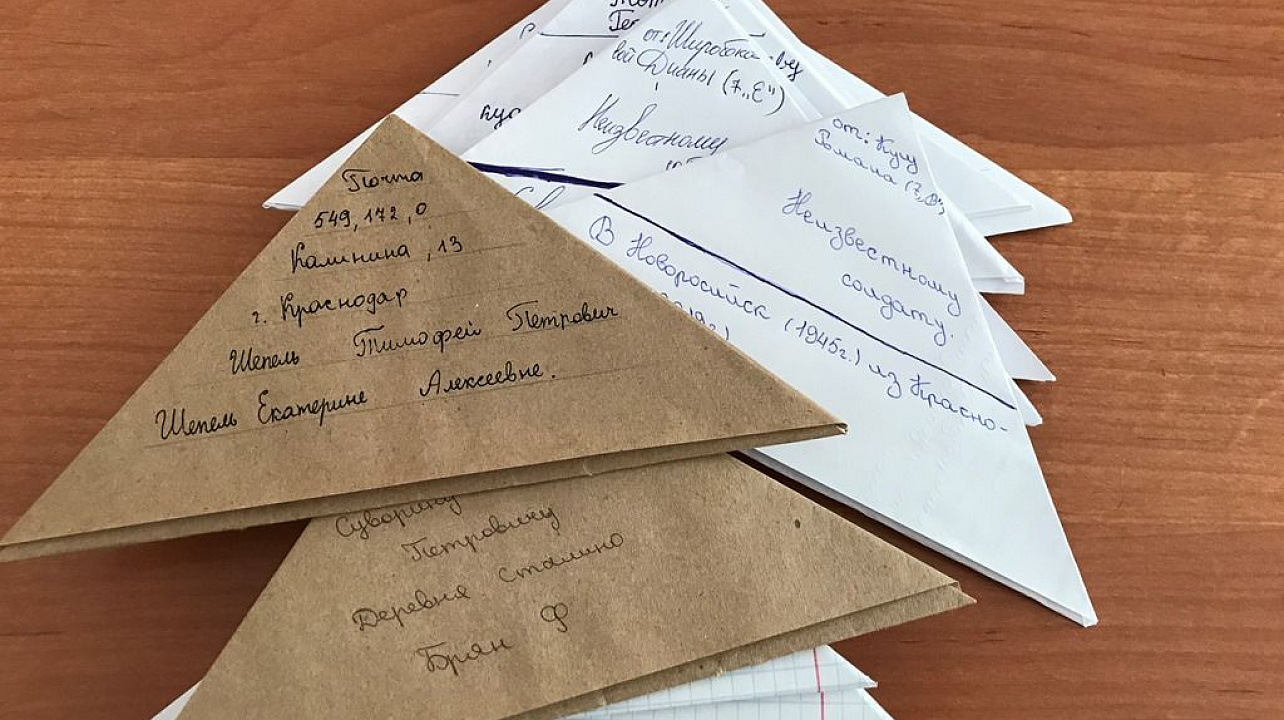 от: Широбоко-
вой Дианы (7 „Е")
Неизвестному
от: Кучу
Романа (7
Неизвестному
солдату.
В Новоросийск (1945г.) из Красно-
19г.)
Почта
549, 172, 0
Калинина, 13
г. Краснодар
Шепель Тимофей Петрович
Шепель Екатерине Алексеевне.
Суворину
Петровичу
Деревня Сталино
Брян Ф